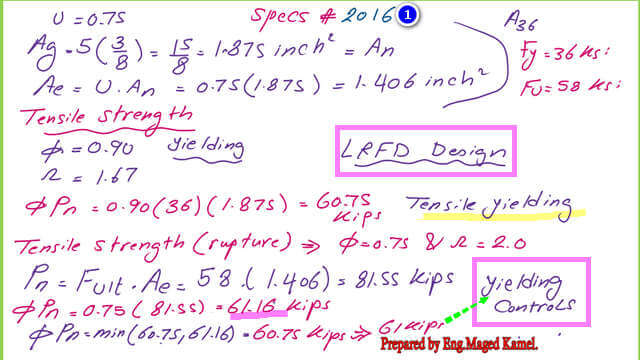 U = 0.75
Specs # 2016 1
A36
Ag = 5(3/8) = 15/8 = 1.875 inch² = An
Fy = 36 ksi
Ae = U.An = 0.75(1.875) = 1.406 inch²
Fu = 58 ksi
Tensile strength
φ = 0.90 yielding
LRFD Design
Ω = 1.67
φPn = 0.90(36)(1.875) = 60.75 Kips
Tensile yielding
Tensile strength (rupture) ⇒ φ=0.75 & Ω = 2.0
Pn = Fult . Ae = 58.(1.406) = 81.55 Kips
yielding
controls
φPn = 0.75(81.55) = 61.16 Kips
φPn = min(60.75, 61.16) = 60.75 Kips ⇒ 61 Kips
Prepared by Eng.Maged Kamel.